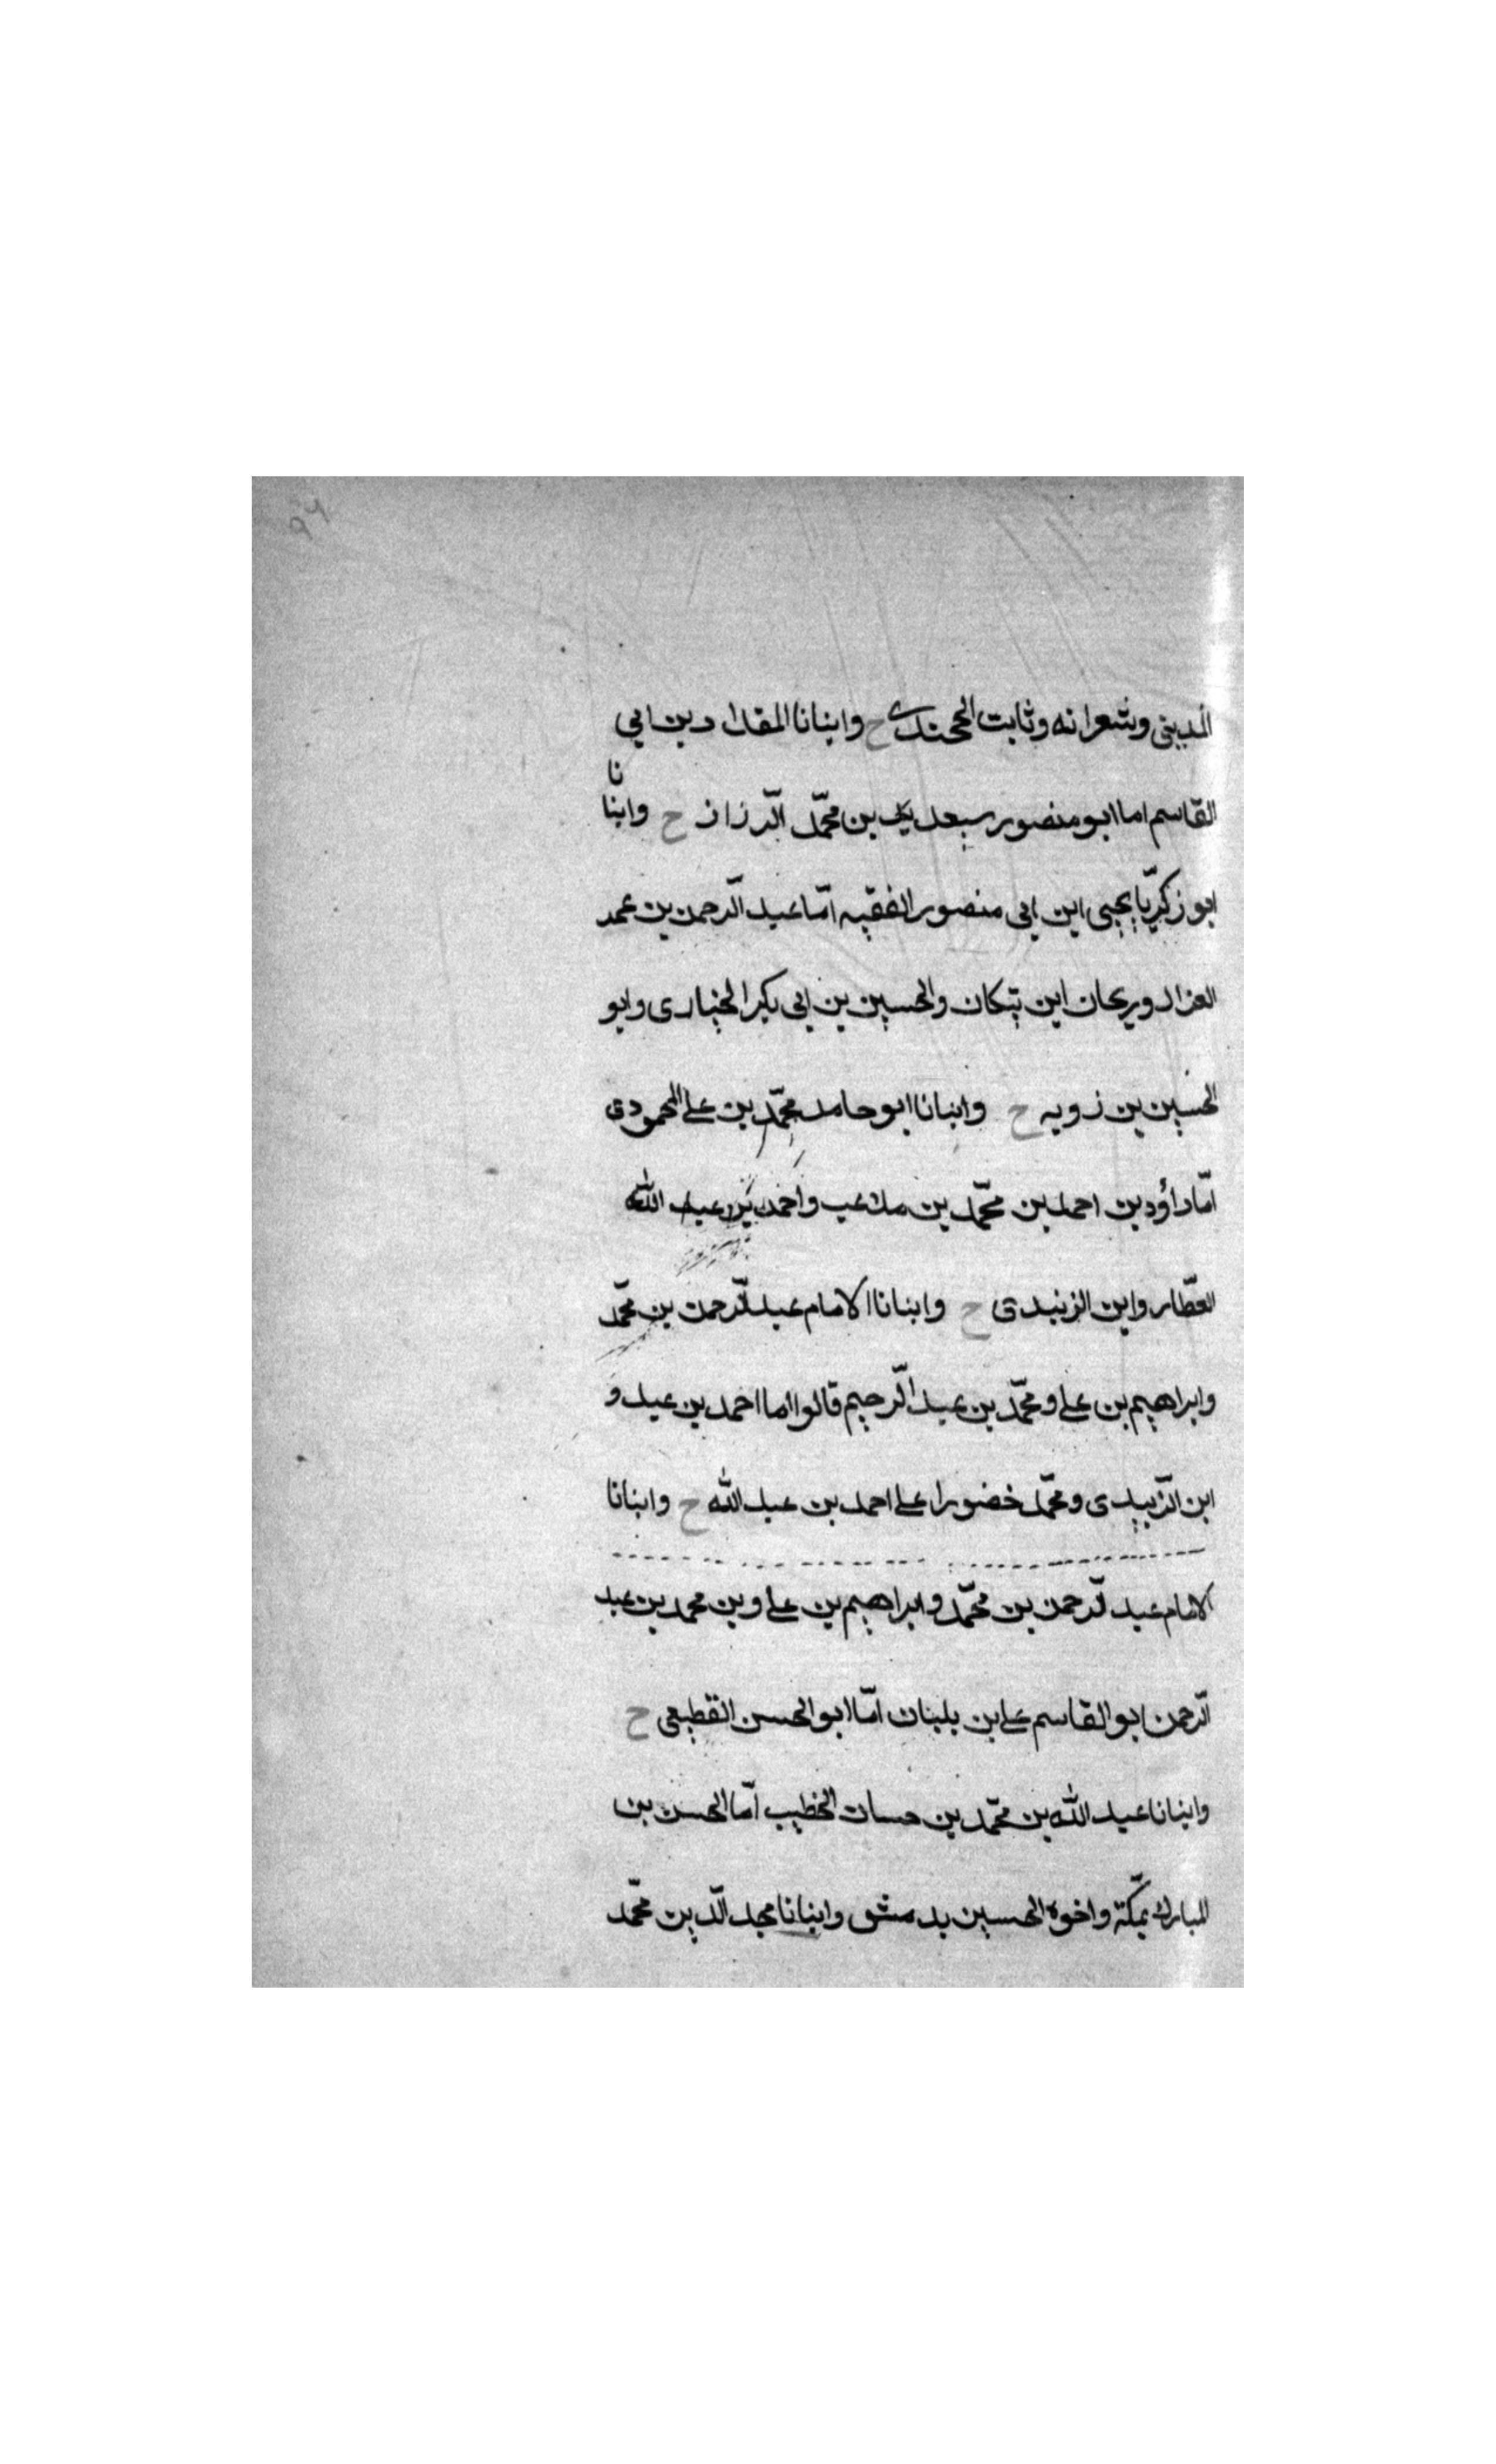 ٩٦
المديني وشعرانه وثابت الخجندي ح وانبانا المقداد بن ابي
القاسم اما ابو منصور سعيد بن محمّد الّرزاز ح وانبا نا
ابو زكريّا يحيى ابن ابي منصور الفقيه امّا عبد الّرحمن بن عمد
الغزال وريحان ابن تيكان والحسين بن ابي بكر الخباري وابو
الحسين بن زويه ح وانبانا ابو حامد محمّد بن علي المحمودي
امّا داؤد بن احمد بن محمّد بن ملاعب واحمد بن عبد الله
العطّار وابن الزنبدي ح وانبانا الامام عبد الّرحمن بن محمّد
وابراهيم بن علي ومحمّد بن عبد الّرحيم قالوا اما احمد بن عبد و
ابن الزّبيدي ومحمّد خضورا علي احمد بن عبد الله ح وانبانا
الامام عبد الّرحمن بن محمّد وابراهيم بن علي وبن محمد بن عبد
الّرحمن ابو القاسم علي بن بلبان امّا ابو الحسن القطيعي ح
وانبانا عبد الله بن محمّد بن حسان الخطيب امّا الحسن بن
المبارك بمكّة واخوه الحسين بدمشق وانبانا مجد الّدين محمّد